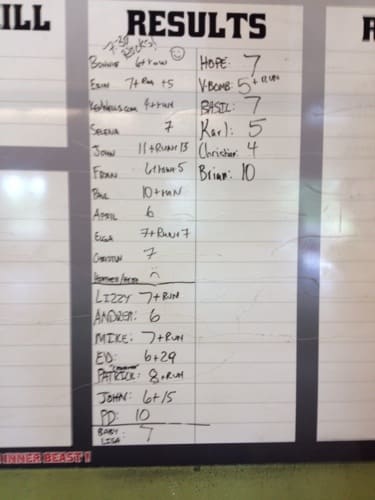 ILL
RESULTS
R
7:30 ROCKS!
BONNIE 6+ROW
ERIN 7+RUN+5
4+RUN
SELENA 7
JOHN 11+RUN+13
FRAN 6+
PAUL 10+RUN
APRIL 6
7+RUN+7
CHRISTIAN 7
LIZZY 7+RUN
ANDREA: 6
MIKE: 7+RUN
ED: 6+29
PATRICK: 8+RUN
JOHN: 6+15
PD: 10
BABY LISA: 7
HOPE: 7
V-BOMB: 5+RUN
BASIL: 7
Karl: 5
Christian: 4
Brian: 10
INNER BEAST!